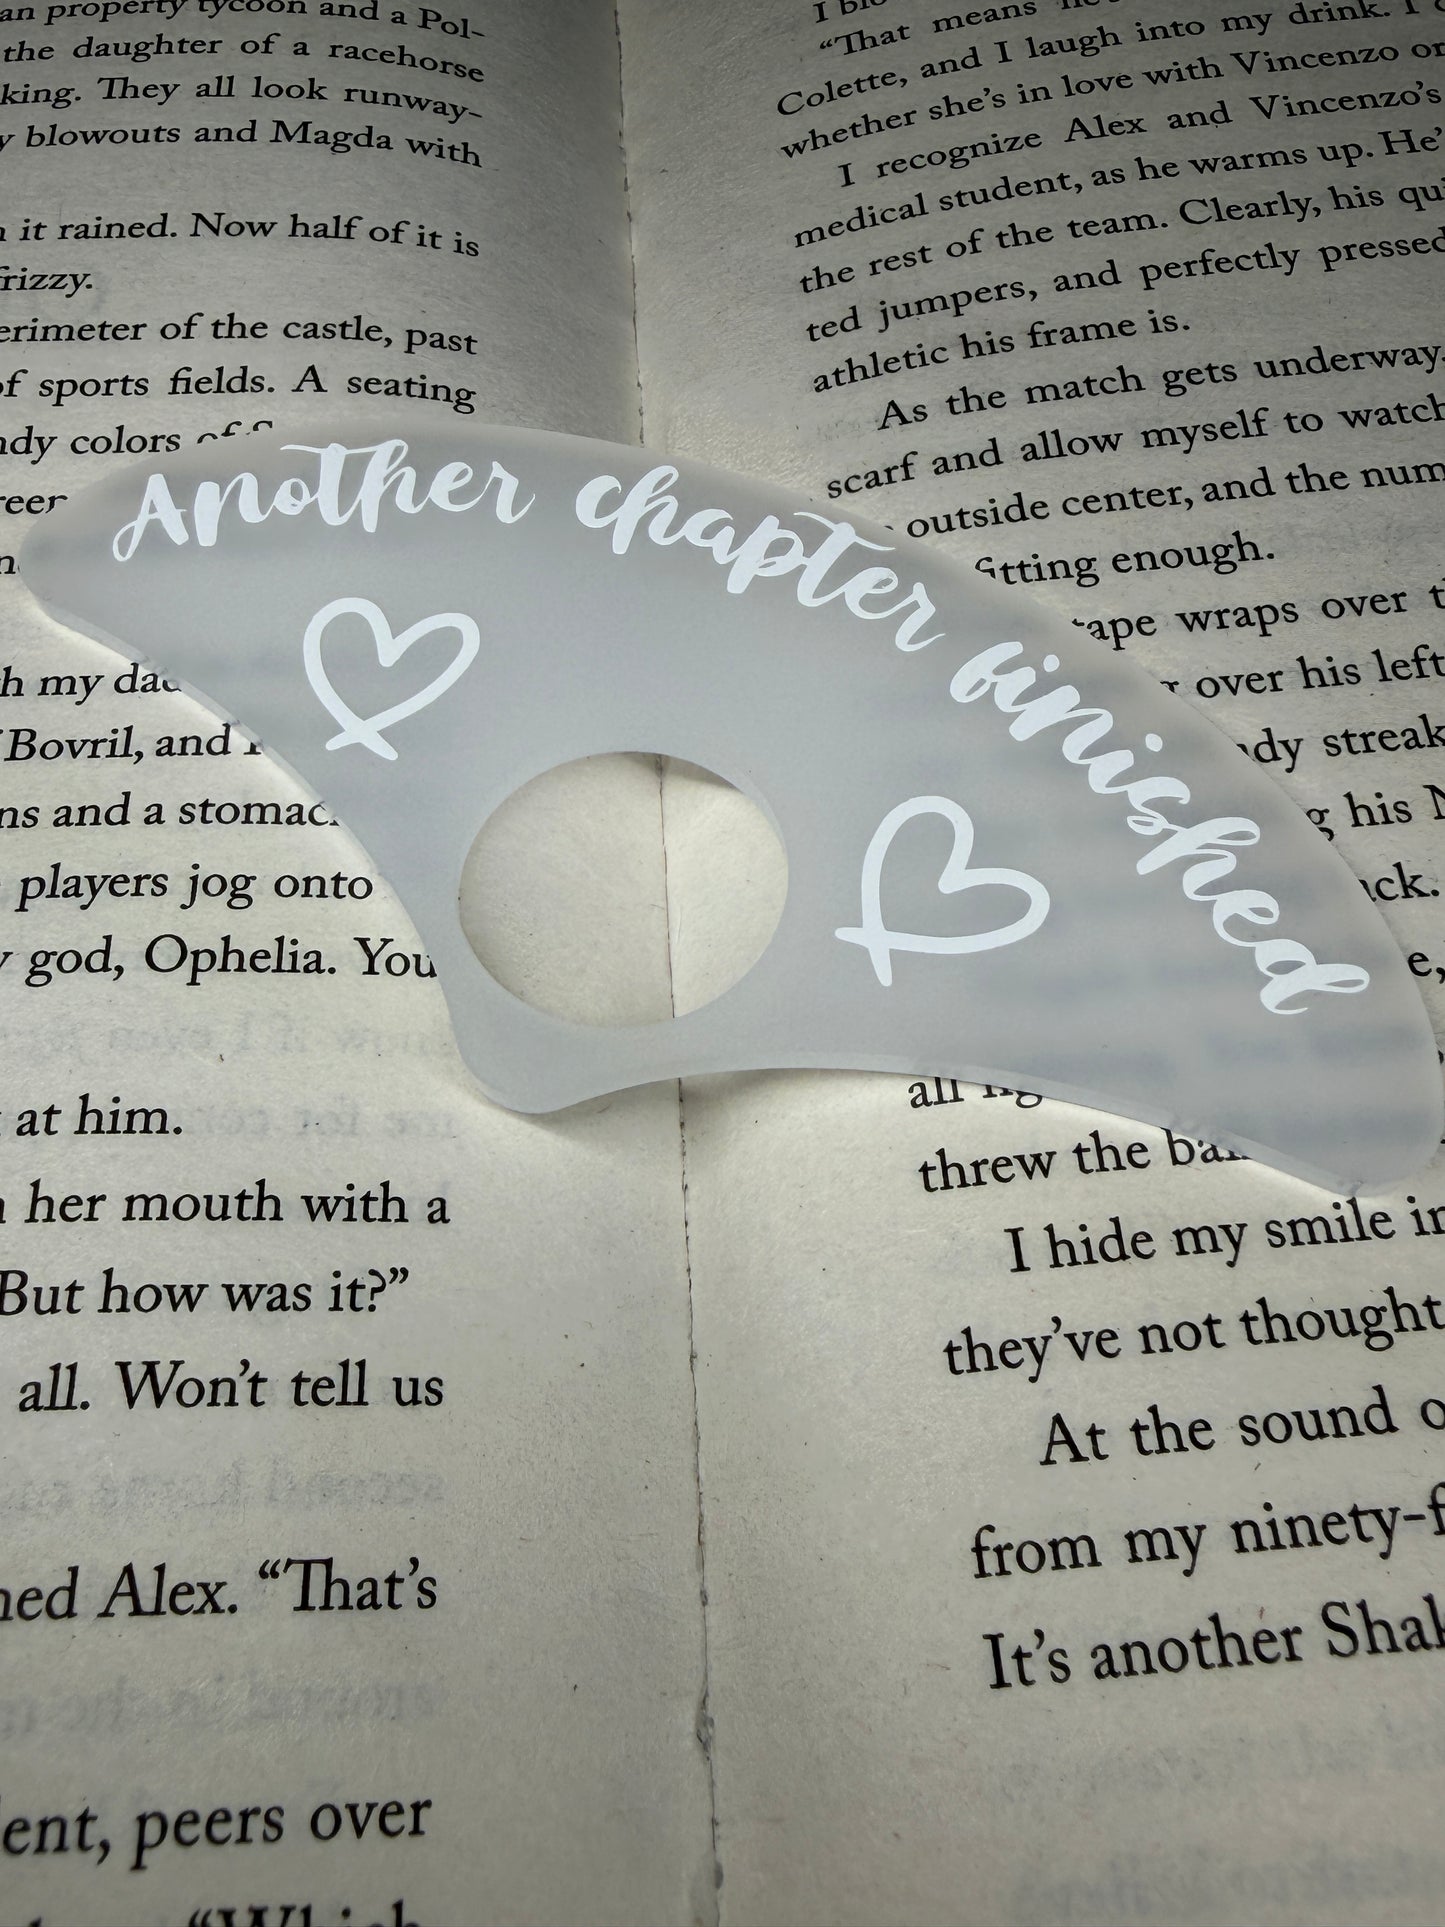 an property tycoon and a Pol-
the daughter of a racehorse
king. They all look runway-
blowouts and Magda with
it rained. Now half of it is
frizzy.
of the castle, past
of sports fields. A seating
colors
my
Bovril, and
and a
players jog onto
god, Ophelia. You
at him.
her mouth with a
But how was it?”
all. Won’t tell us
Alex. “That’s
peers over
Another chapter finished
“That means
Colette, and I laugh into my drink. I
whether she’s in love with Vincenzo or
I recognize Alex and Vincenzo’s
medical student, as he warms up. He’
the rest of the team. Clearly, his
ted jumpers, and perfectly pressed
athletic his frame is.
As the match gets underway,
scarf and allow myself to watch
outside center, and the num
enough.
wraps over
over his left
streak
his
all
threw the
I hide my smile in
they’ve not thought
At the sound
from my ninety-f
It’s another Shak